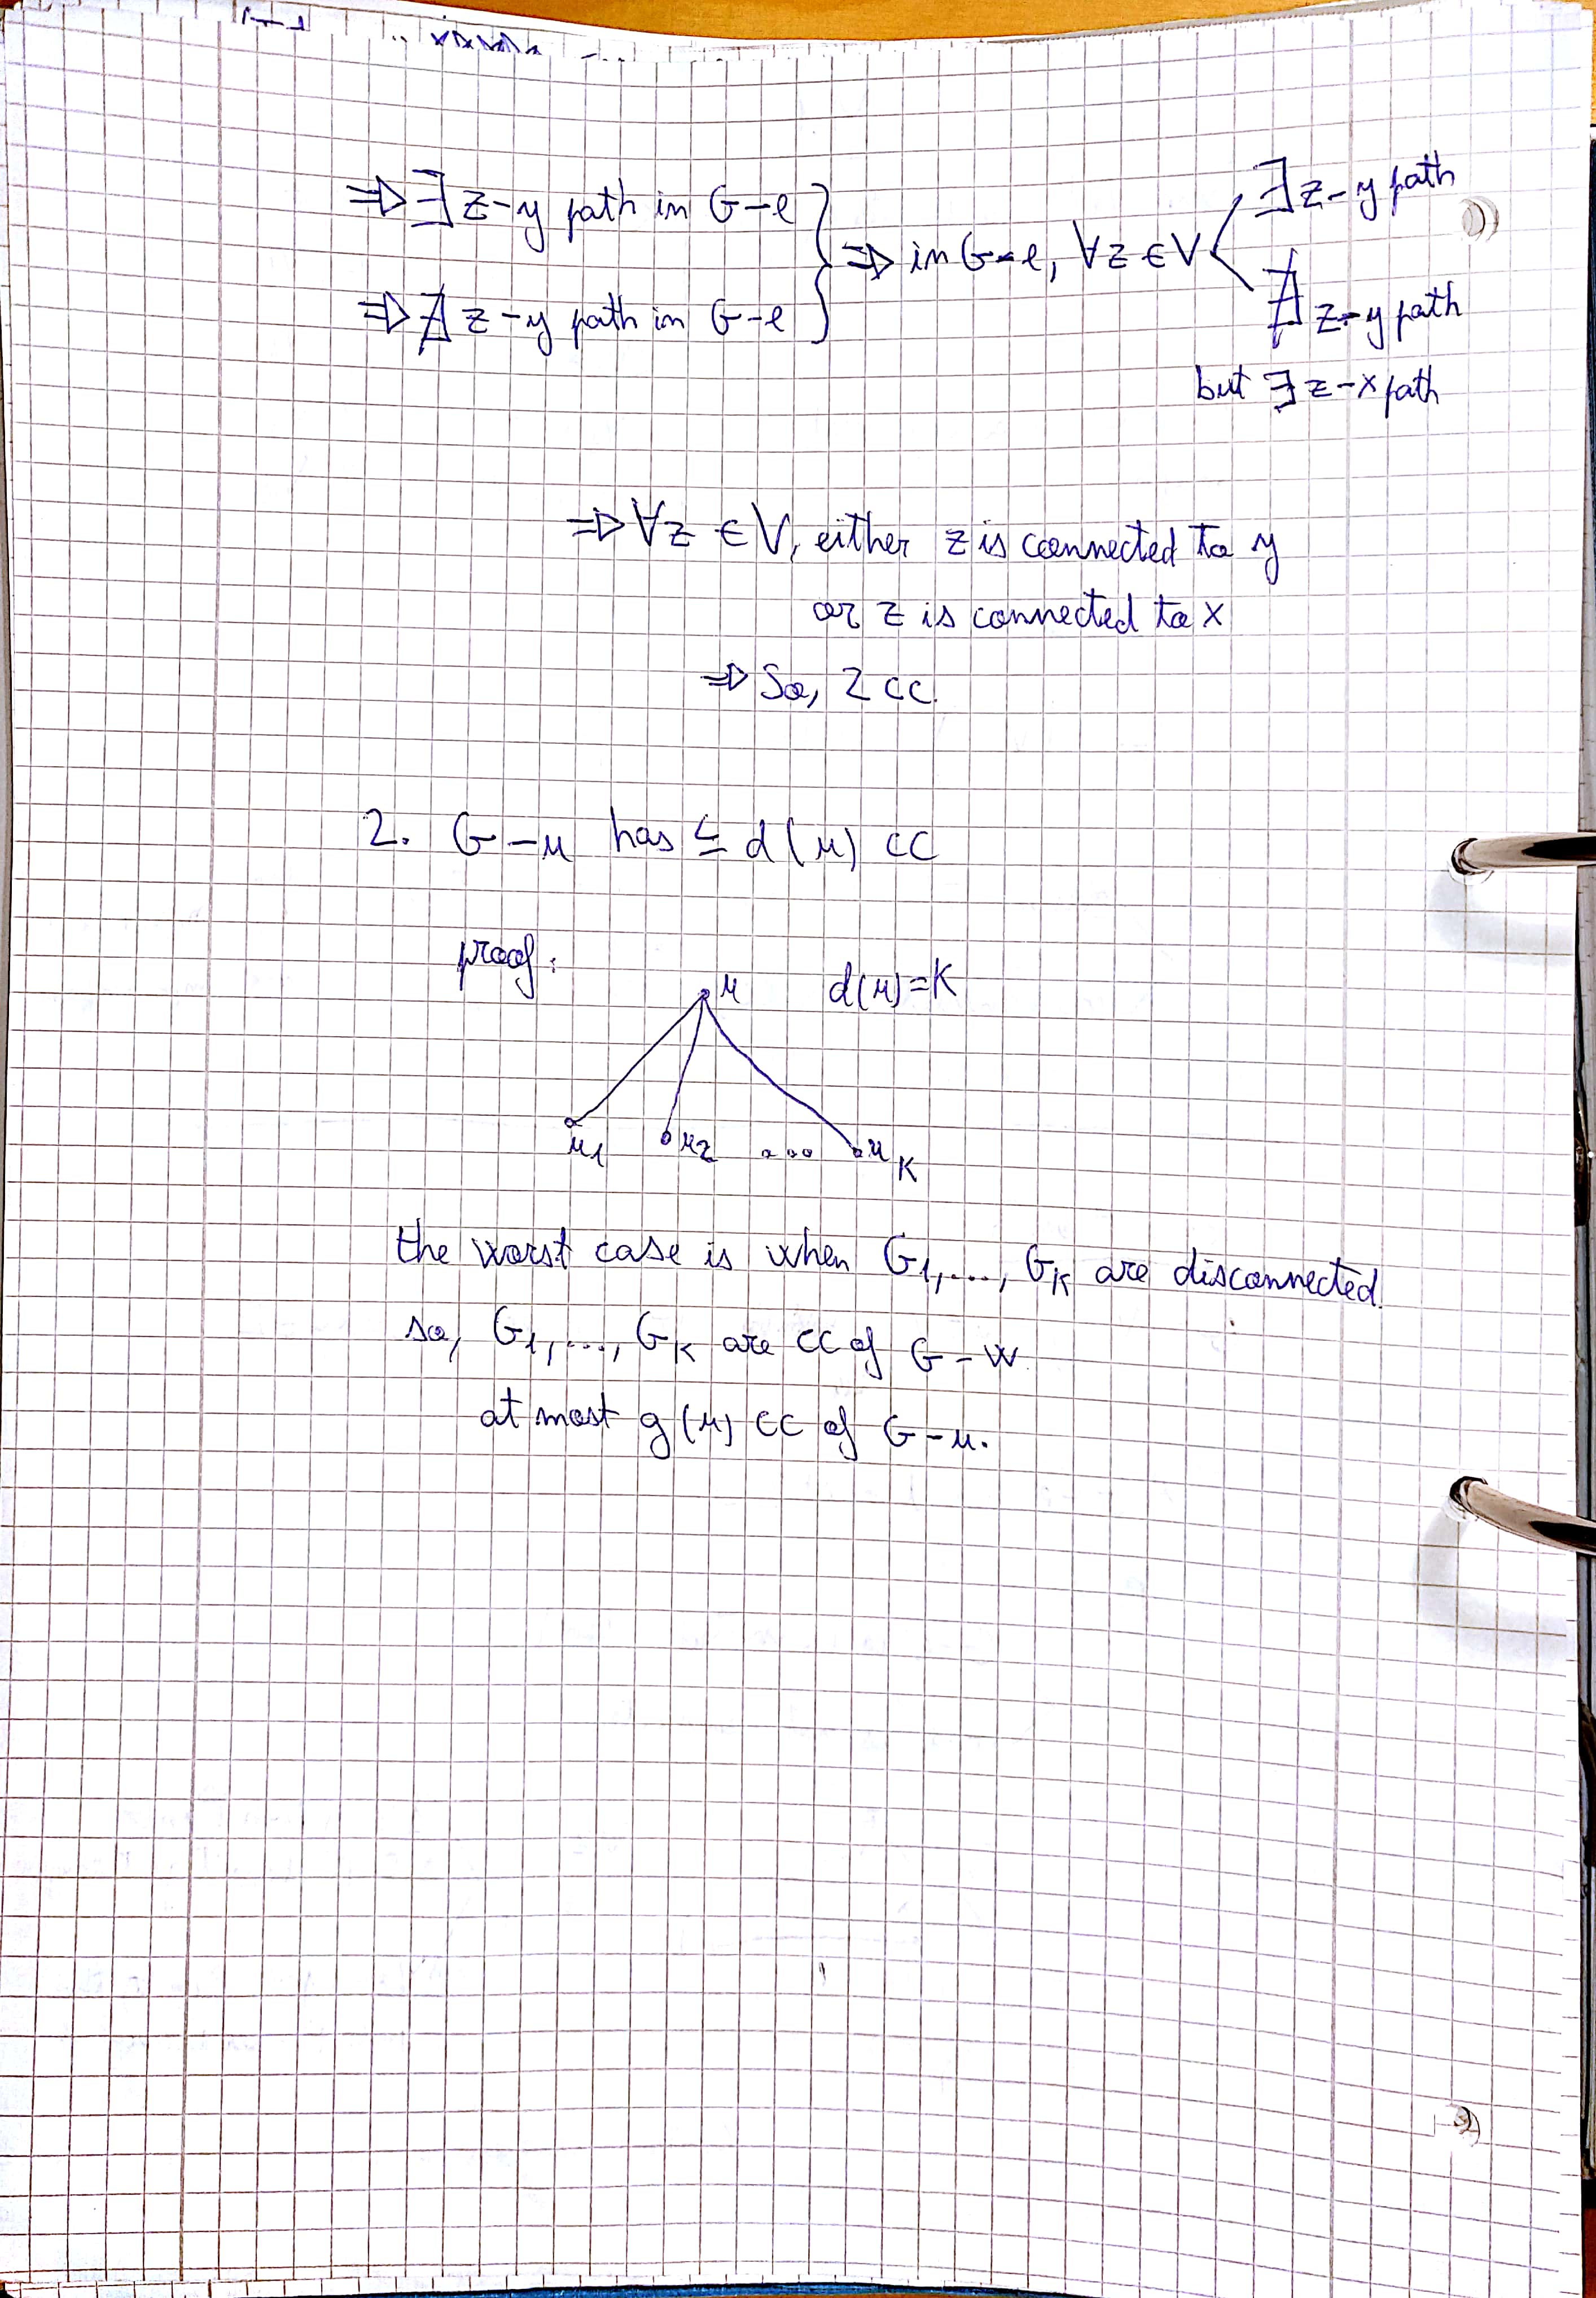 ⇒ ∃ z-y path in G-e
⇒ ∄ z-y path in G-e
⇒ in G-e, ∀z ∈ V
∃ z-y path
∄ z-y path
but ∃ z-x path
⇒ ∀z ∈ V, either z is connected to y
or z is connected to x
⇒ So, 2 CC.
2. G-u has ≤ d(u) CC
proof:
u d(u)=K
u1 u2 ... uK
the worst case is when G1,..., GK are disconnected.
so, G1,..., GK are CC of G-w
at most g(u) CC of G-u.